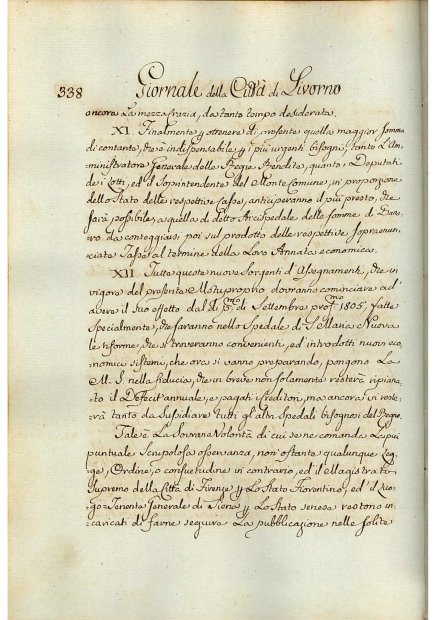 338
Giornale della Città di Livorno
ancora la mezza crazia, da tanto tempo desiderata.
XI. Finalmente p ottenere di presente quella maggior somma
di contante, che è indispensabile p i più urgenti bisogni, tanto l'Am,
ministratore Generale delle Regie Rendite, quanto i Deputati
de i Lotti, ed il Sopintendente del Monte Comune, in proporzione
dello Stato delle respettive Casse, anticiperanno il più presto, che
sarà possibile, a quella di detto Arcispedale delle somme di Dana,
ro da conteggiarsi poi sul prodotto delle respettive sopraenun,
ciate Tasse al termine della Loro Annata economica.
XII. Tutte queste nuove Sorgenti d'Assegnamenti, che in
vigore del presente Motuproprio dovranno cominciare ad
avere il suo effetto dal dì p.mo di Settembre pros.mo 1805, fatte
Specialmente, che saranno nello Spedale di S. Maria Nuova
le riforme, che si troveranno convenienti, ed introdotti nuovi eco,
nomici sistemi, che ora si vanno preparando, pongono La
M. S. nella fiducia, che in breve non solamente resterà ripiana,
to il Deficit annuale, e pagati i creditori, ma ancora vi reste,
rà tanto da Sussidiare tutti gl'altri Spedali bisognosi del Regno.
Tale è La Sovrana Volontà di cui se ne comanda La più
puntuale Scrupolosa osservanza, non'ostante qualunque Leg,
ge, Ordine, o consuetudine in contrario, ed il Magistrato
Supremo della Città di Firenze p Lo Stato Fiorentino, ed'il Luo,
go Tenente Generale di Siena p Lo Stato senese restono in,
caricati di farne seguire La pubblicazione nelle solite